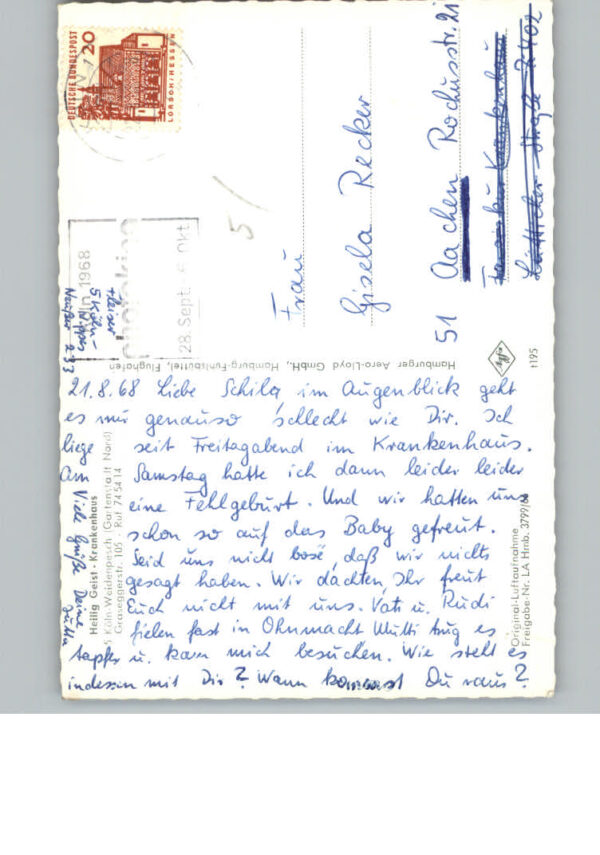 21.8.68 Liebe Schila, im Augenblick geht
es mir genauso schlecht wie Dir. Ich
liege seit Freitagabend im Krankenhaus.
Am Samstag hatte ich dann leider leider
eine Fehlgeburt. Und wir hatten uns
schon so auf das Baby gefreut.
Seid uns nicht bösé, daß wir nichts
gesagt haben. Wir dachten, Ihr freut
Euch nicht mit uns. Vati u. Rudi
fielen fast in Ohnmacht Mutti trug es
tapfer u. kam mich besuchen. Wie steht es
indessen mit Dir? Wann kommst Du raus?
Viele Grüße Deine
Jutta
Heilig Geist-Krankenhaus
5 Köln-Weidenpesch (Gartenstadt Nord)
Graseggerstr. 105 - Ruf 745414
Original-Luftaufnahme
Freigabe-Nr. LA Hmb. 3799/66
Hamburger Aero-Lloyd GmbH., Hamburg-Fuhlsbüttel, Flughafen
Agfa
t195
5 Köln-
Nippes
Neußer 233
DEUTSCHE BUNDESPOST
20
LORSCH/HESSEN
Köln 1968
photokina
28. Sept.-6. Okt.
5/
Frau
Gisela Recker
51 Aachen Rochusstr. 21